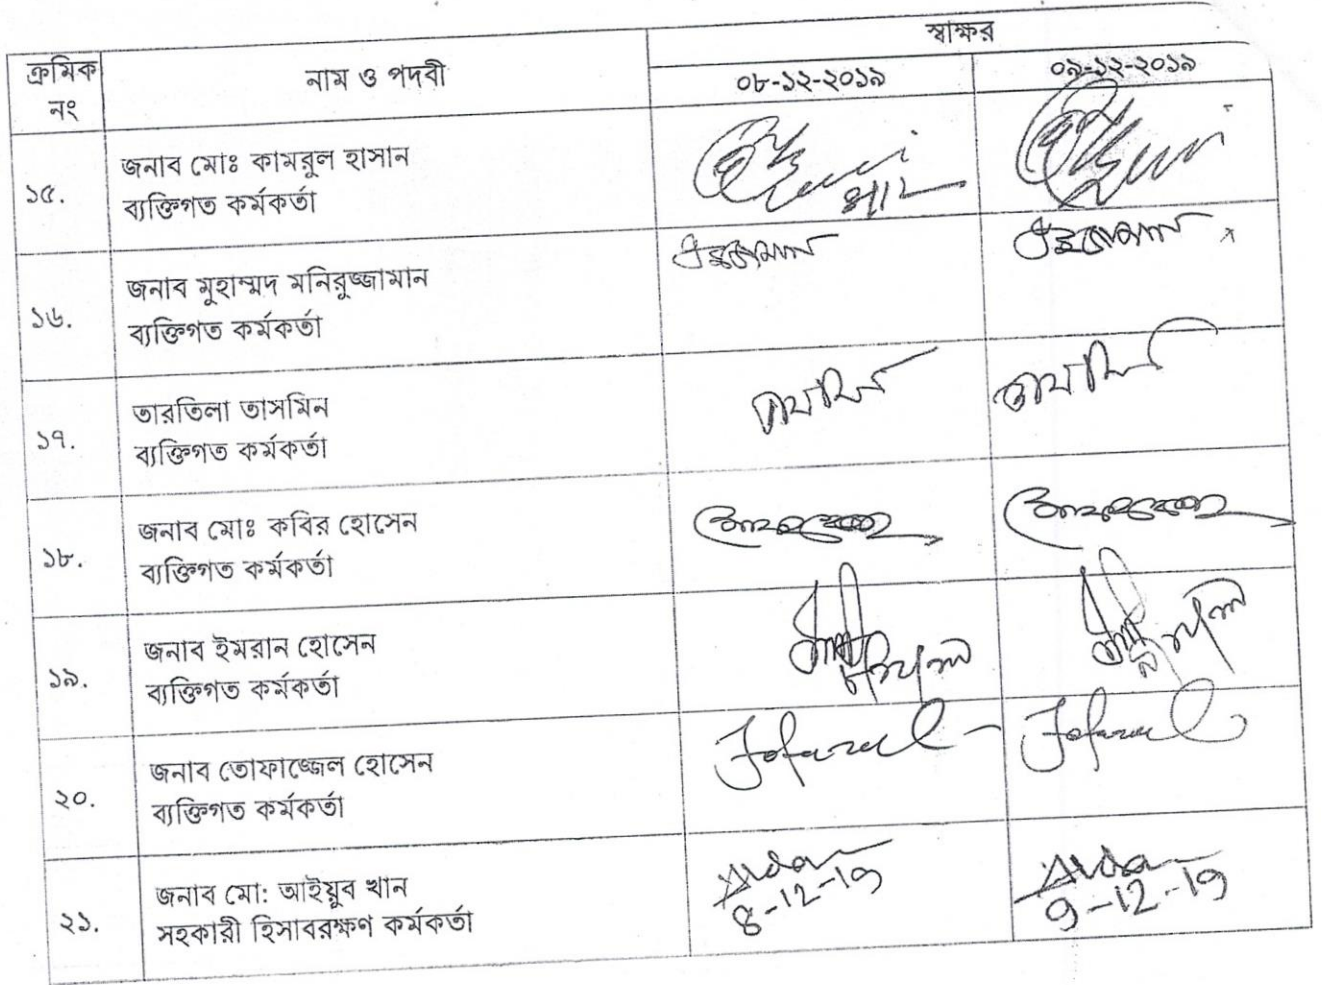 স্বাক্ষর
ক্রমিক নং
নাম ও পদবী
০৮-১২-২০১৯
০৯-১২-২০১৯
১৫.
জনাব মোঃ কামরুল হাসান
ব্যক্তিগত কর্মকর্তা
১৬.
জনাব মুহাম্মদ মনিরুজ্জামান
ব্যক্তিগত কর্মকর্তা
১৭.
তারতিলা তাসমিন
ব্যক্তিগত কর্মকর্তা
১৮.
জনাব মোঃ কবির হোসেন
ব্যক্তিগত কর্মকর্তা
১৯.
জনাব ইমরান হোসেন
ব্যক্তিগত কর্মকর্তা
২০.
জনাব তোফাজ্জেল হোসেন
ব্যক্তিগত কর্মকর্তা
২১.
জনাব মো: আইয়ুব খান
সহকারী হিসাবরক্ষণ কর্মকর্তা
8-12-19
9-12-19